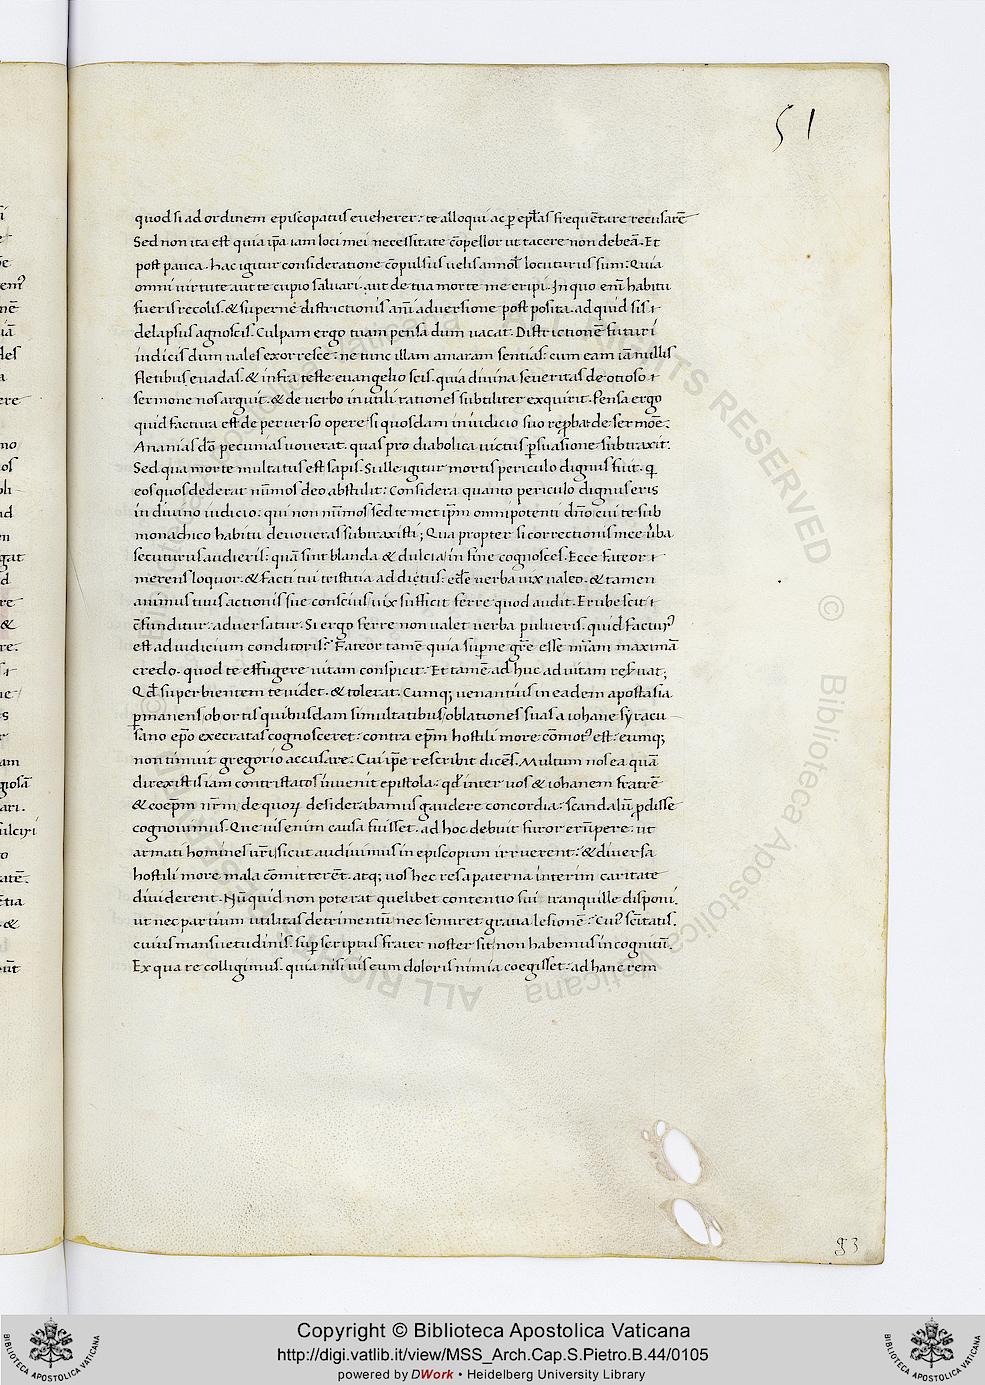 51
quod si ad ordinem episcopatus eveherer: te alloqui ac p̱ ep̄las frequētare recusarē
Sed non ita est quia ip̄a iam loci mei necessitate cōpellor ut tacere non debeā. Et
post pauca. hac igitur consideratione cōpulsus velis an nol̄ locuturus sum: Quia
omni virtute aut te cupio salvari. aut de tua morte me eripi. In quo eni᷒ habitu
fueris recolis. & supernę districtionis ani᷒adversione post posita. ad quid sis
delapsus agnoscis. Culpam ergo tuam pensa dum vacat. Districtionē futuri
iudicis dum vales exorresce: ne tunc illam amaram sentias: cum eam iā nullis
fletibus evadas. & infra teste evangelio scis. quia divina severitas de otioso
sermone nos arguit. & de verbo inutili rationes subtiliter exquirit. Pensa ergo
quid factura est de perverso opere: si quosdam in iudicio suo rep̱bat de sermōe:
Ananias dō pecunias voverat. quas pro diabolica victus p̱suasione subtraxit:
Sed qua morte multatus est sapis. Si ille igitur mortis periculo dignus fuit. q̄
eos quos dederat nūmos deo abstulit: Considera quanto periculo dignus eris
in divino iudicio: qui non nūmos sed te met ip̄m omnipotenti dn̄o cui te sub
monachico habitu devoveras subtraxisti; Qua propter si correctionis meę v̄ba
secuturus audieris: quā sint blanda & dulcia in fine cognosces. Ecce fateor
merens loquor. & facti tui tristitia addictus: ede verba vix valeo. & tamen
animus tuus actionis suę conscius vix sufficit ferre quod audit. Erubescit
cōfunditur. adversatur. Si ergo ferre non valet verba pulveris. quid factur᷒
est ad iudicium conditoris? Fateor tamē quia sup̱nę gr̄ę esse nīam maximā
credo. quod te effugere vitam conspicit. Et tamē ad huc ad vitam reservat;
Qd̄ superbientem te videt. & tolerat. Cumq; venantius in eadem apostasia
p̱manens ob ortis quibusdam simultatibus oblationes suas a iohane syracu-
sano ep̄o execratas cognosceret: contra ep̄m hostili more cōmot᷒ est: eumq;
non timuit gregorio accusare: Cui ip̄e rescribit dicēs. Multum nos ea quā
direxistis iam contristatos invenit epistola: qd̄ inter vos & iohanem fratrē
& coep̄m nr̄m, de quoꝝ desiderabamus gaudere concordia: scandalū p̱disse
cognovimus. Quę vis enim causa fuisset. ad hoc debuit furor erūpere: ut
armati homines vr̄i sicut audivimus in episcopum irruerent: & diversa
hostili more mala cōmitterēt. atq; vos hec res a paterna interim caritate
dividerent. Nūquid non poterat quęlibet contentio sui tranquille disponi.
ut nec partium utilitas detrimentū nec sentiret gratia lesionē: Cui᷒ sc̄itatis.
cuius mansuetudinis. sup̱scriptus frater noster sit non habemus incognitū.
Ex qua re colligimus. quia nisi vis eum doloris nimia coegisset: ad hanc rem
93
Copyright © Biblioteca Apostolica Vaticana
http://digi.vatlib.it/view/MSS_Arch.Cap.S.Pietro.B.44/0105
powered by DWork • Heidelberg University Library
BIBLIOTECA APOSTOLICA VATICANA
BIBLIOTECA APOSTOLICA VATICANA
© Biblioteca Apostolica Vaticana ALL RIGHTS RESERVED